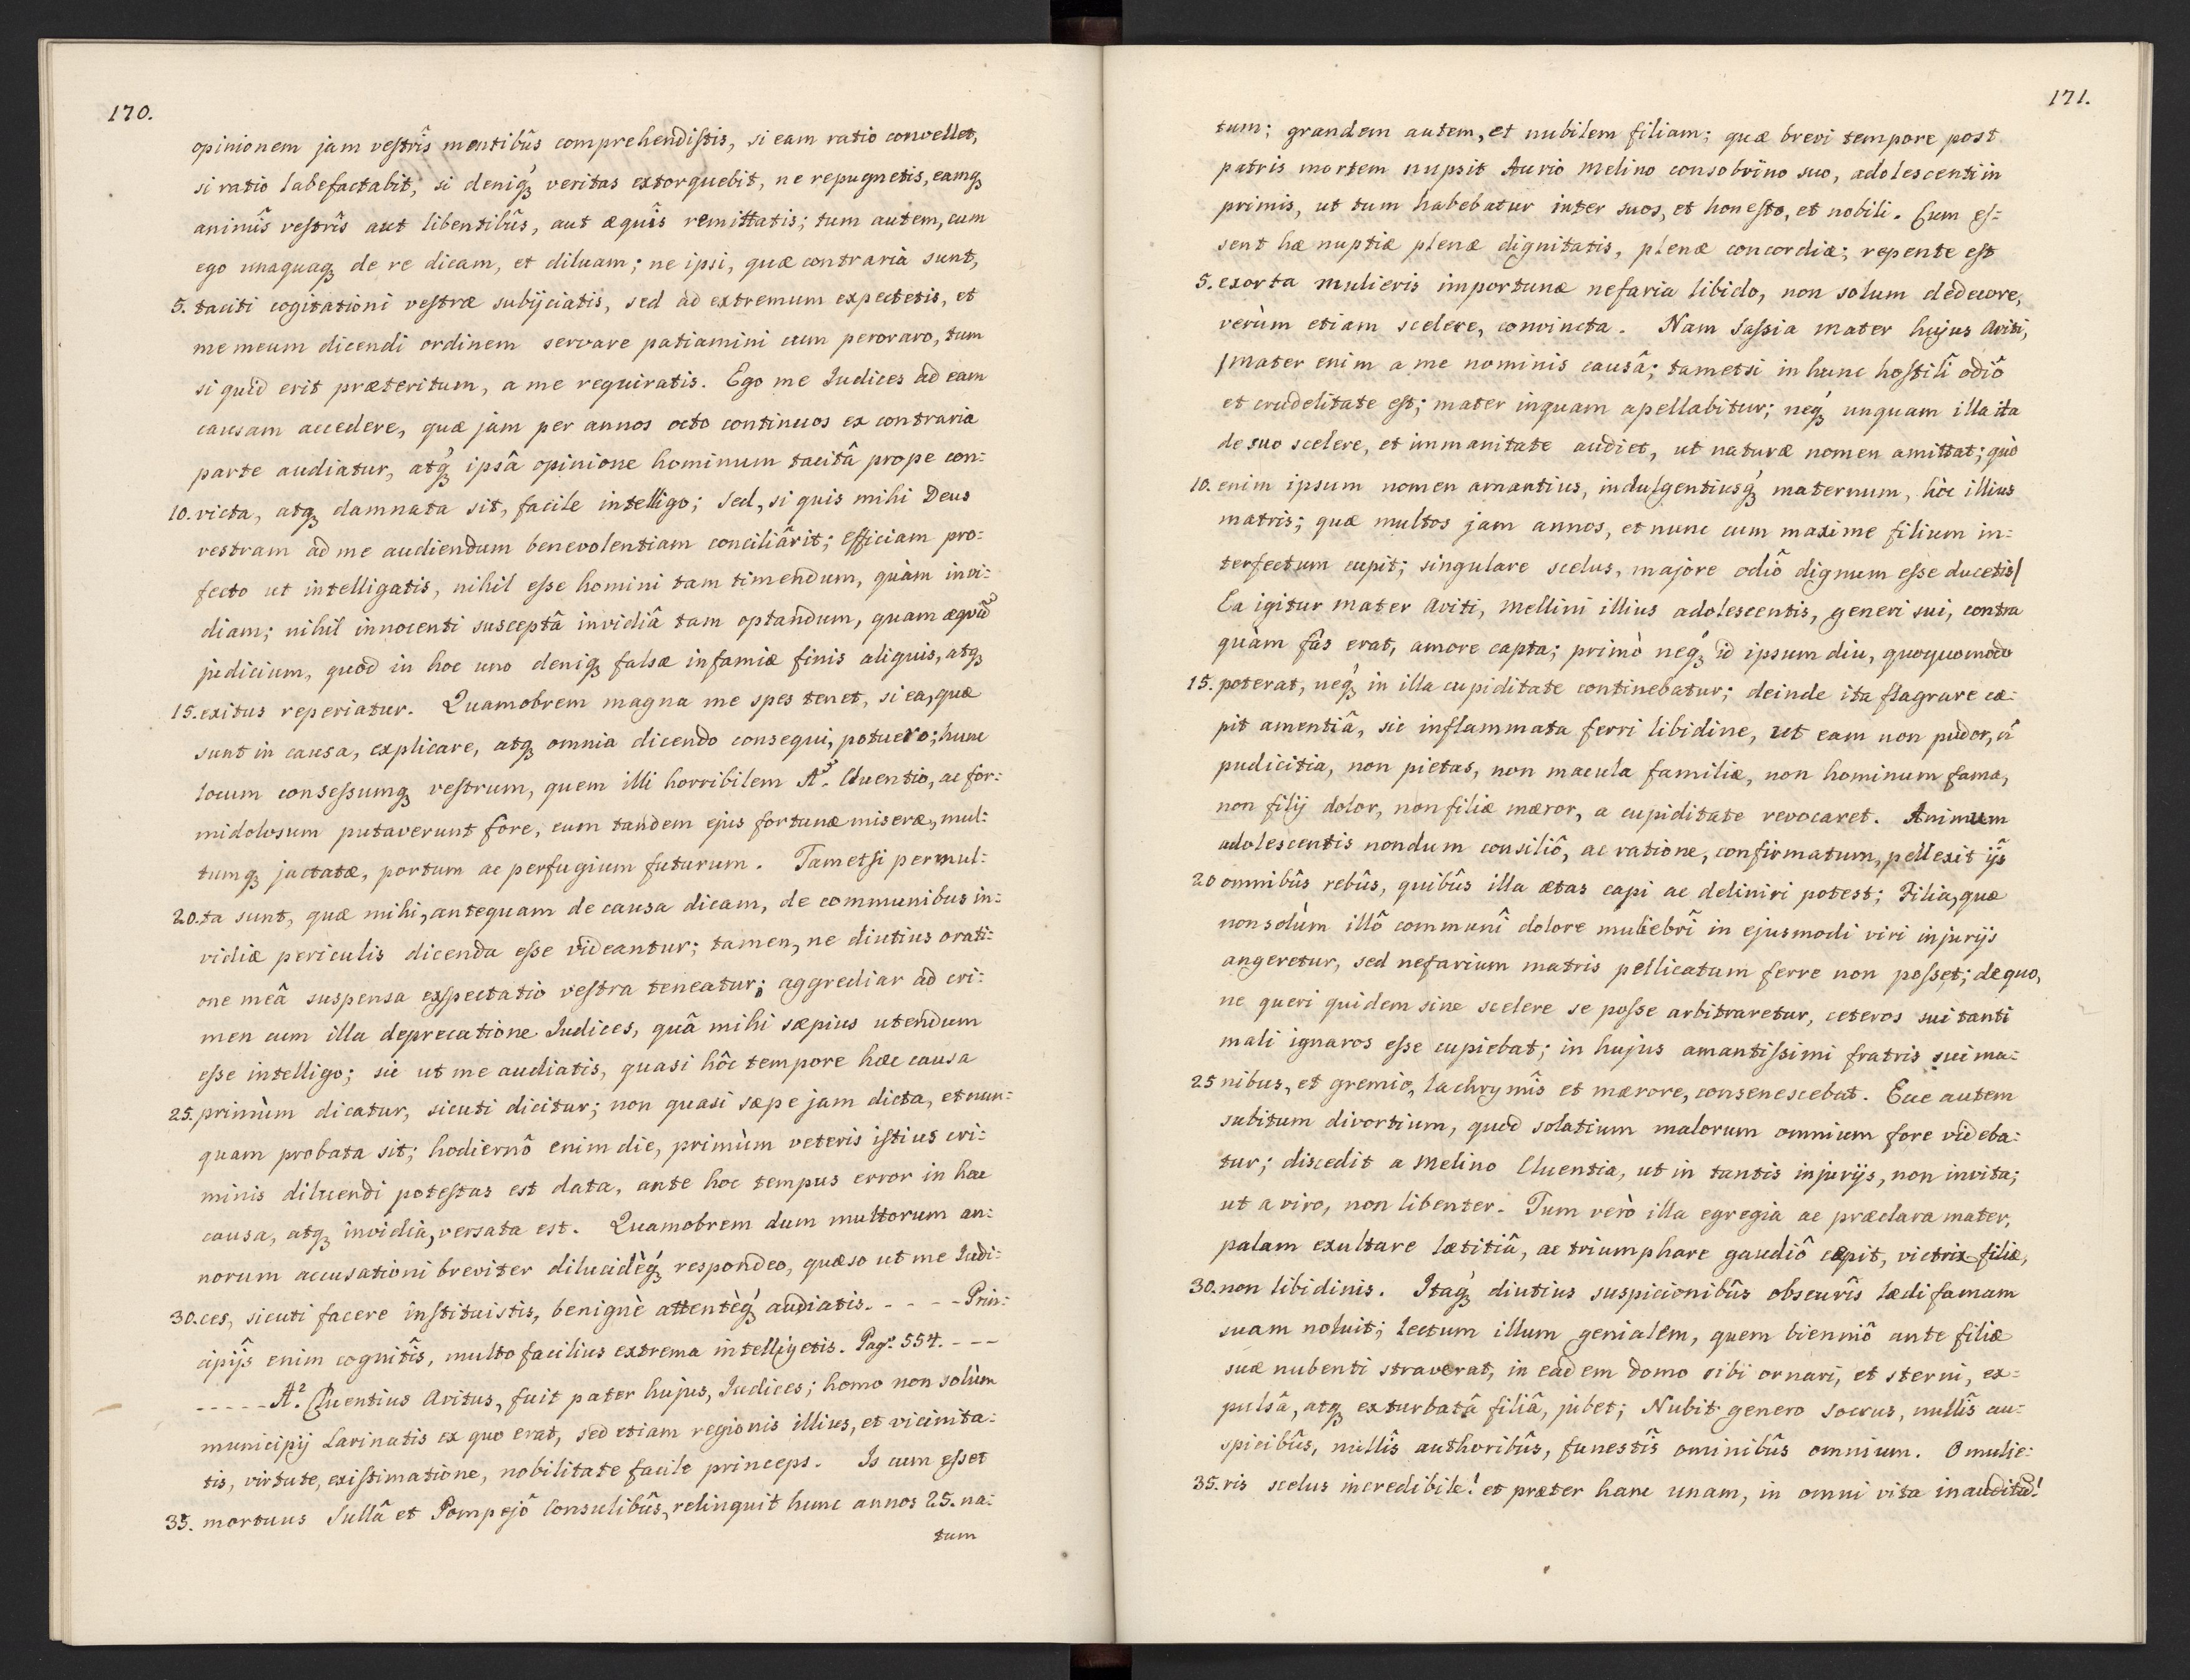 170.
opinionem jam vestrîs mentibûs comprehendistis, si eam ratio convellet,
si ratio labefactabit, si deniq́ꝫ veritas extorquebit, ne repugnetis, eamqꝫ
animîs vestrîs aut libentibûs, aut æquîs remittatis; tum autem, cum
ego unaquaqꝫ de re dicam, et diluam; ne ipsi, quæ contraria sunt,
5. taciti cogitationi vestræ subijciatis, sed ad extremum expectetis, et
me meum dicendi ordinem servare patiamini cum peroraro, tum
si quid erit præteritum, a me requiratis. Ego me Iudices ad eam
causam accedere, quæ jam per annos octo continuos ex contraria
parte audiatur, atq́ꝫ ipsâ opinione hominum tacitâ prope con:
10. victa, atqꝫ damnata sit, facile intelligo; sed, si quis mihi Deus
vestram ad me audiendum benevolentiam conciliârit; efficiam pro:
fecto ut intelligatis, nihil esse homini tam timendum, quàm invi:
diam; nihil innocenti susceptâ invidiâ tam optandum, quam æquũ
judicium, quod in hoc uno deniqꝫ falsæ infamiæ finis aliquis, atqꝫ
15. exitus reperiatur. Quamobrem magna me spes tenet, si ea, quæ
sunt in causa, explicare, atqꝫ omnia dicendo consequi, potuero; hunc
locum consessumqꝫ vestrum, quem illi horribilem A. Cluentio, ac for:
midolosum putaverunt fore, eum tandem ejus fortunæ miseræ, mul:
tumqꝫ jactatæ, portum ac perfugium futurum. Tametsi permul:
20. ta sunt, quæ mihi, antequam de causa dicam, de communibus in:
vidiæ periculis dicenda esse videantur; tamen, ne diutius orati:
one meâ suspensa exspectatio vestra teneatur; aggrediar ad cri:
men cum illa deprecatione Iudices, quâ mihi sæpius utendum
esse intelligo; sic ut me audiatis, quasi hôc tempore hæc causa
25. primùm dicatur, sicuti dicitur; non quasi sæpe jam dicta, et nun:
quam probata sit; hodiernô enim die, primùm veteris istius cri:
minis diluendi potestas est data, ante hoc tempus error in hac
causa, atqꝫ invidia, versata est. Quamobrem dum multorum an:
norum accusationi breviter dilucidèq́ꝫ respondeo, quæso ut me Iudi:
30. ces, sicuti facere instituistis, benignè attentèq́ꝫ audiatis. - - - - Prin:
cipijs enim cognitîs, multo facilius extrema intelligetis. Pag. 554. - - -
- - - - - A. Cluentius Avitus, fuit pater hujus, Iudices; homo non solùm
municipij Larinatis ex quo erat, sed etiam regionis illius, et vicinita:
tis, virtute, existimatione, nobilitate facile princeps. Is cum esset
35. mortuus Sullâ et Pompejô Consulibûs, relinquit hunc annos 25. na:
tum
171.
tum; grandem autem, et nubilem filiam; quæ brevi tempore post
patris mortem nupsit Aurio Melino consobrino suo, adolescenti in
primis, ut tum habebatur inter suos, et honesto, et nobili. Cum es:
sent hæ nuptiæ plenæ dignitatis, plenæ concordiæ; repente est
5. exorta mulieris importunæ nefaria libido, non solum dedecore,
verùm etiam scelere, convincta. Nam Sassia mater hujus Aviti,
/mater enim a me nominis causâ; tametsi in hunc hostilî odiô
et crudelitate est; mater inquam apellabitur; neq́ꝫ unquam illa ita
de suo scelere, et immanitate audiet, ut naturæ nomen amittat; quò
10. enim ipsum nomen amantius, indulgentiusq́ꝫ maternum, hôc illius
matris; quæ multos jam annos, et nunc cum maxime filium in:
terfectum cupit; singulare scelus, majore odiô dignum esse ducetis/
Ea igitur mater Aviti, Mellini illius adolescentis, generi sui, contra
quàm fâs erat, amore capta; primò neq́ꝫ id ipsum diu, quoquomodo
15. poterat, neq́ꝫ in illa cupiditate continebatur; deinde ita flagrare cæ:
pit amentiâ, sic inflammata ferri libidine, ut eam non pudor, ñ
pudicitia, non pietas, non macula familiæ, non hominum fama,
non filij dolor, non filiæ mæror, a cupiditate revocaret. Animum
adolescentis nondum consiliô, ac ratione, confirmatum, pellexit ijs
20 omnibûs rebûs, quibûs illa ætas capi ac deliniri potest; Filia, quæ
non solùm illô communî dolore muliebrî in ejusmodi viri injurijs
angeretur, sed nefarium matris pellicatum ferre non posset; de quo,
ne queri quidem sine scelere se posse arbitraretur, ceteros sui tanti
mali ignaros esse cupiebat; in hujus amantissimi fratris sui ma:
25 nibus, et gremio, lachrymîs et mærore, consenescebat. Ecce autem
subitum divortium, quod solatium malorum omnium fore videba:
tur; discedit a Melino Cluentia, ut in tantis injurijs, non invita;
ut a viro, non libenter. Tum verò illa egregia ac præclara mater,
palam exultare lætitiâ, ac triumphare gaudiô cæpit, victrix filiæ,
30. non libidinis. Itaq́ꝫ diutius suspicionibûs obscurîs lædi famam
suam noluit; lectum illum genialem, quem bienniô ante filiæ
suæ nubenti straverat, in eadem domo sibi ornari, et sterni, ex:
pulsâ, atqꝫ exturbatâ filiâ, jubet; Nubit genero Socrus, nullîs au:
spicibûs, nullîs authoribûs, funestîs ominibûs omnium. O mulie:
35. ris scelus incredibile! et præter hanc unam, in omni vita inauditũ!